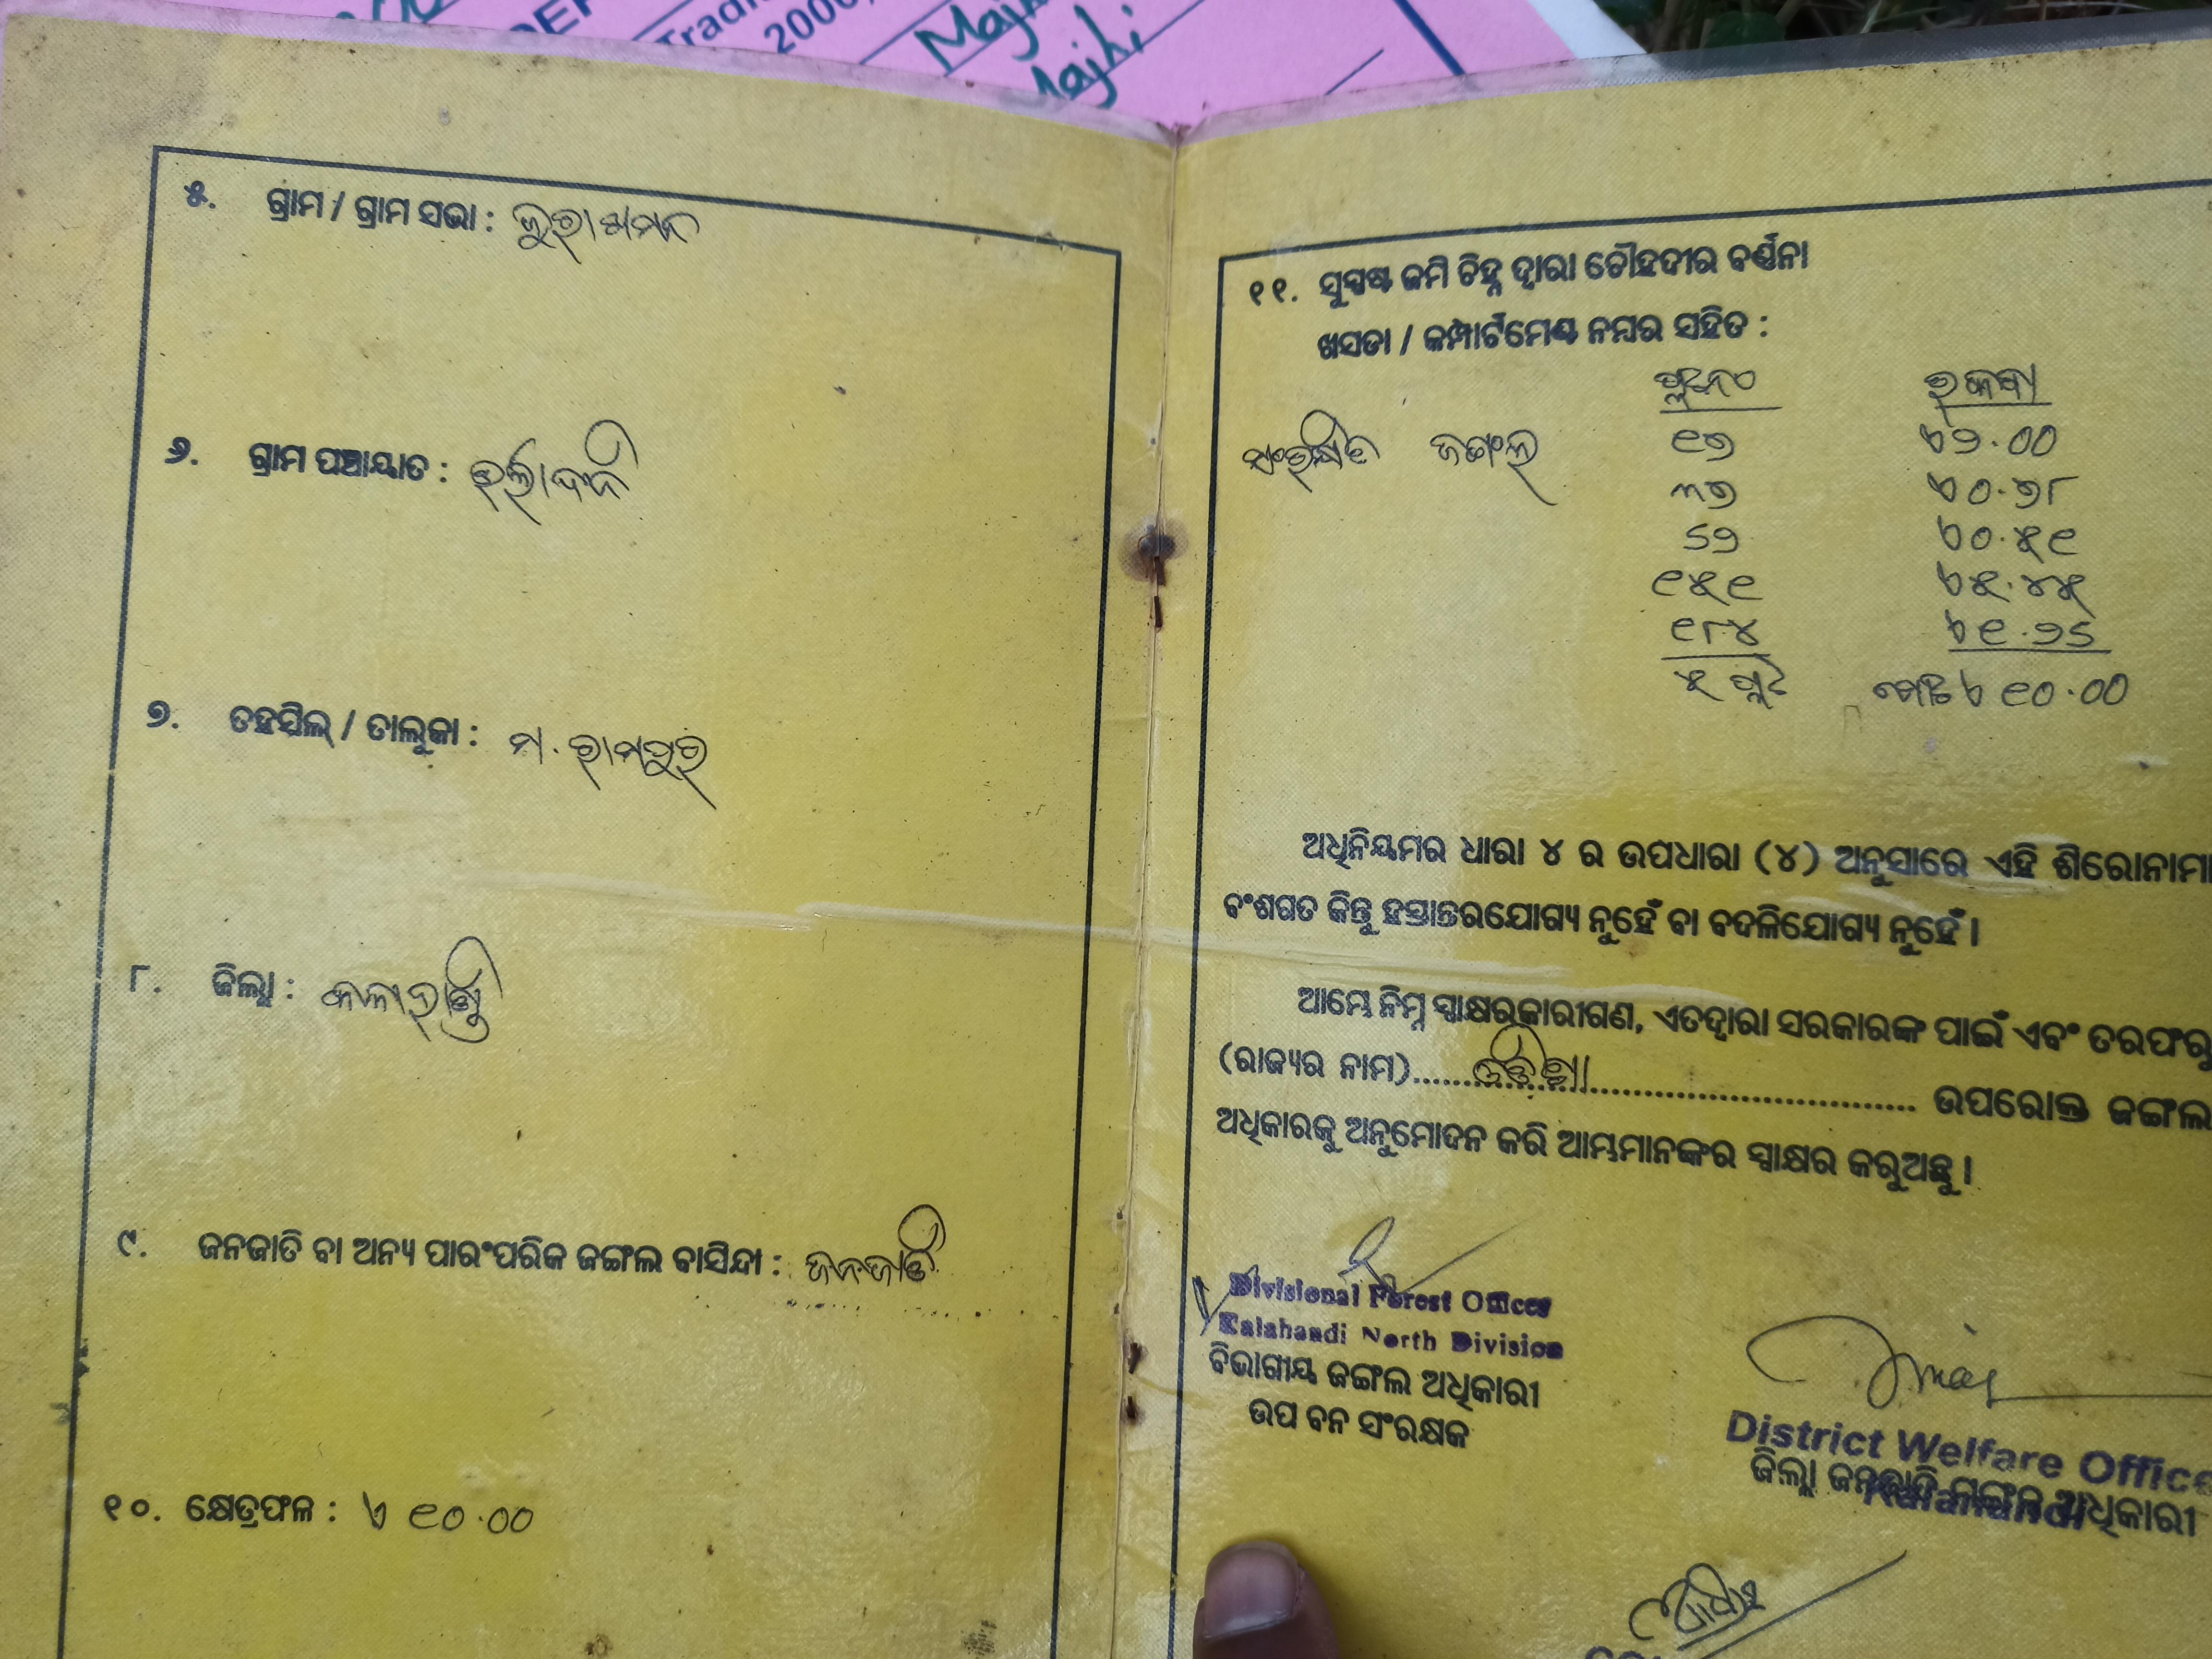 Majhi
୫. ଗ୍ରାମ / ଗ୍ରାମ ସଭା : ଭୁରାଖମନ
୬. ଗ୍ରାମ ପଞ୍ଚାୟାତ :
୭. ତହସିଲ୍ / ତାଲୁକା : ମ. ରାମପୁର
୮. ଜିଲ୍ଲା : କଳାହାଣ୍ଡି
୯. ଜନଜାତି ବା ଅନ୍ୟ ପାରଂପରିକ ଜଙ୍ଗଲ ବାସିନ୍ଦା : ଜନଜାତି
୧୦. କ୍ଷେତ୍ରଫଳ : ଏ ୧୦.୦୦
୧୧. ସୁସ୍ପଷ୍ଟ ଜମି ଚିହ୍ନ ଦ୍ୱାରା ଚୌହଦୀର ବର୍ଣ୍ଣନା
ଖସଡା / କମ୍ପାର୍ଟମେଣ୍ଟ ନମ୍ବର ସହିତ :
ପ୍ଲଟନଂ ରକବା
ସଂରକ୍ଷିତ ଜଙ୍ଗଲ ୧୭ ଏ୨.୦୦
୩୭ ଏ୦.୭୮
୬୨ ଏ୦.୫୧
୧୫୧ ଏ୫.୪୫
୧୮୪ ଏ୧.୨୬
୫ ପ୍ଲଟ ମୋଟ ଏ ୧୦.୦୦
ଅଧିନିୟମର ଧାରା ୪ ର ଉପଧାରା (୪) ଅନୁସାରେ ଏହି ଶିରୋନାମା
ବଂଶଗତ କିନ୍ତୁ ହସ୍ତାନ୍ତରଯୋଗ୍ୟ ନୁହେଁ ବା ବଦଳିଯୋଗ୍ୟ ନୁହେଁ ।
ଆମ୍ଭେ ନିମ୍ନ ସ୍ୱାକ୍ଷରକାରୀଗଣ, ଏତଦ୍ଦ୍ୱାରା ସରକାରଙ୍କ ପାଇଁ ଏବଂ ତରଫରୁ
(ରାଜ୍ୟର ନାମ)..... ଓଡ଼ିଶା ..... ଉପରୋକ୍ତ ଜଙ୍ଗଲ
ଅଧିକାରକୁ ଅନୁମୋଦନ କରି ଆମ୍ଭମାନଙ୍କର ସ୍ୱାକ୍ଷର କରୁଅଛୁ ।
Divisional Forest Officer
Kalahandi North Division
ବିଭାଗୀୟ ଜଙ୍ଗଲ ଅଧିକାରୀ
ଉପ ବନ ସଂରକ୍ଷକ
District Welfare Office
ଜିଲ୍ଲା ଜନଜାତି ମଙ୍ଗଳ ଅଧିକାରୀ
Kalahandi